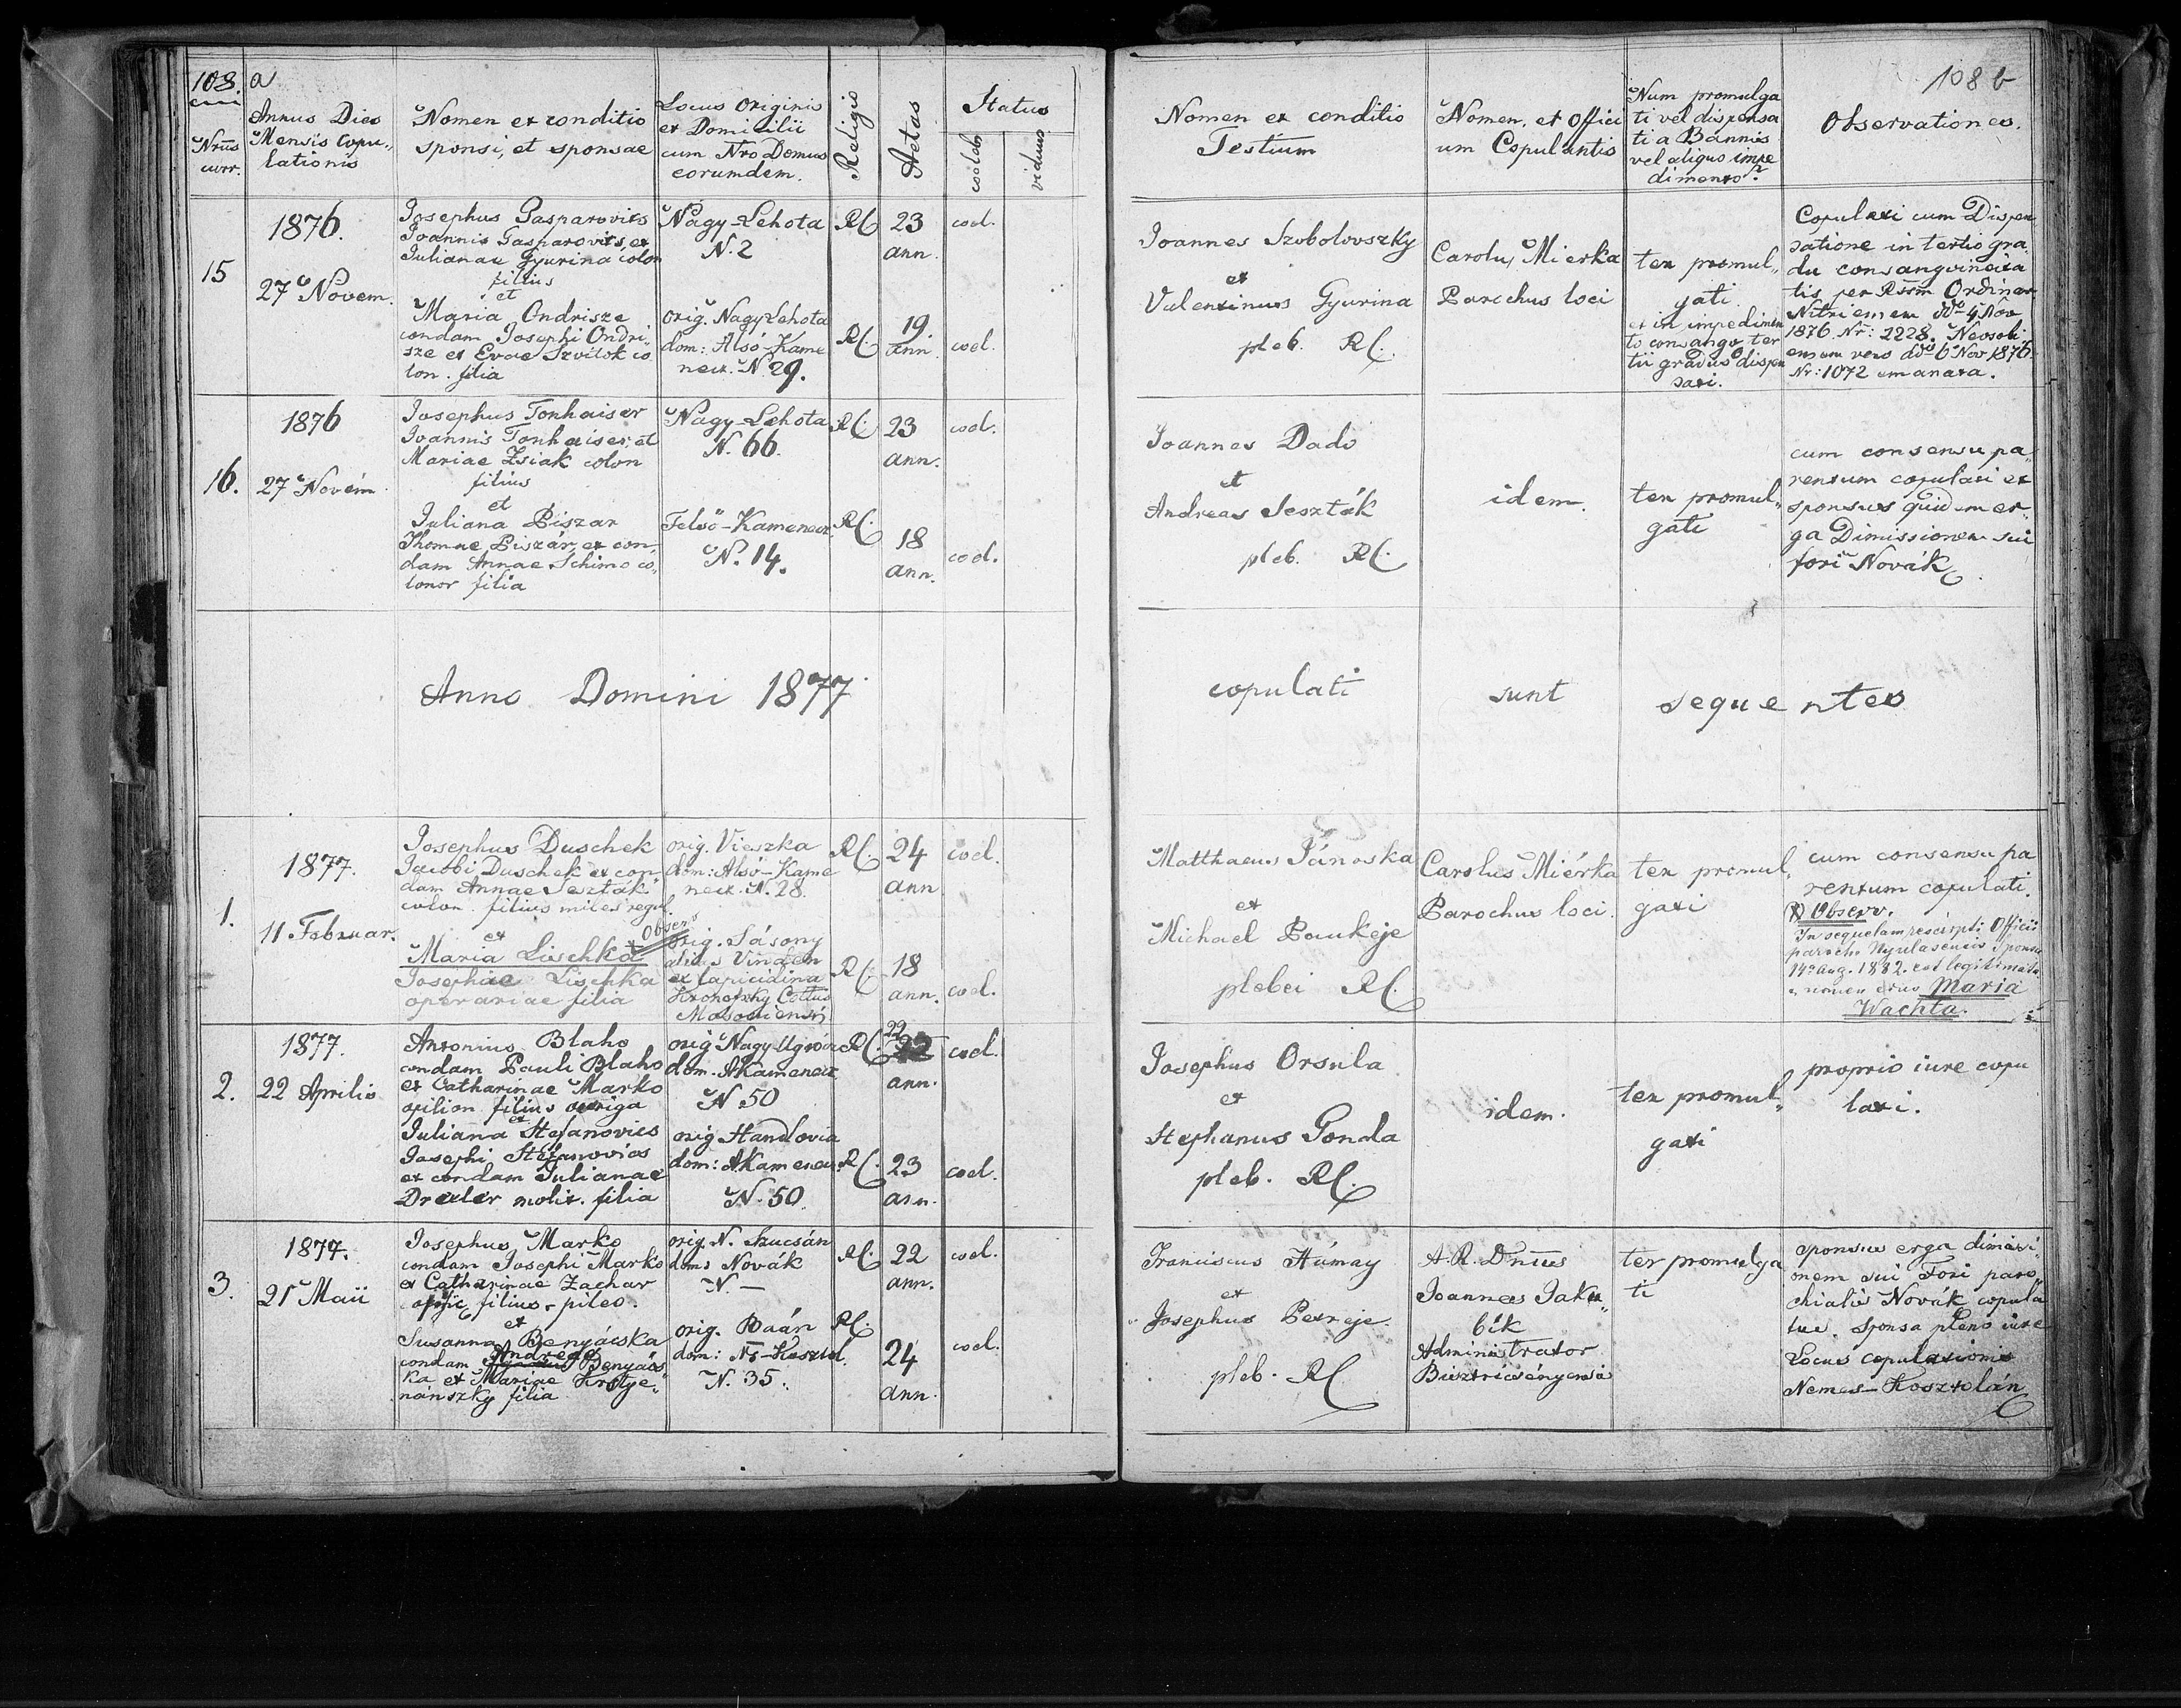 108. a
Nrus
curr.
Annus Dies
Mensis Copu„
lationis
Nomen et conditio
sponsi, et sponsae
Locus Originis
et Domicilii
cum Nro Domus
eorumdem.
Religio
Aetas
Status
coeleb
viduus
15
1876.
27 Novem.
Josephus Gasparovits
Joannis Gasparovits, et
Julianae Gyurina colon
filius
et
Maria Ondrisze
condam Josephi Ondri„
sze et Evae Szvitok co
lon. filia
Nagy-Lehota
N. 2
orig. Nagy Lehota
dom: Alsó-Kame
necz. N. 29.
RC
RC.
23
ann.
19.
ann.
coel.
coel.
16.
1876
27 Novem
Josephus Tonhaiser
Joannis Tonhaiser, et
Mariae Zsiak colon
filius
et
Juliana Piszar
Thomae Piszár, et con„
dam Annae Schimo co„
lonor filia
Nagy-Lehota
N. 66.
Felsö-Kamenecz
N. 14.
RC.
RC.
23
ann.
18
ann.
coel.
coel.
Anno Domini 1877.
1.
1877.
11. Februar.
Josephus Duschek
Jacobi Duschek et con„
dam Annae Seszták
colon. filius miles regul
et
Maria Lischka
Observ
Josephae Lischka
operariae filia
orig. Vieszka
dom: Alsó-Kame
necz. N. 28.
orig. Sásony
alias Vinden
ex lapicidina
Cottus
RC.
RC.
24
ann
18
ann.
coel.
coel.
2.
1877.
22 Aprilis
Antonius Blaho
condam Pauli Blaho
et Catharinae Marko
opilion filius auriga
et
Juliana Stefanovics
Josephi Stefanovics
et condam Julianae
Drexler molit. filia
orig Nagy Ugrócz
dom. AKamenecz
N 50
orig Handlovia
dom: AKamenecz
N. 50.
RC.
RC.
22
ann.
23
ann.
coel.
coel.
3.
1877.
21 Maii
Josephus Marko
condam Josephi Marko
et Catharinae Zachar
filius pileo.
et
Susanna Benyácska
condam Andreae Benyács
ka et Mariae Krstye„
nánszky filia
orig. N. Szucsán
dom: Novák
N. —
orig. Baán
dom: N-Kosztol.
N. 35.
RC.
RC.
22
ann.
24
ann.
coel.
coel.
108 b
Nomen et conditio
Testium
Nomen, et Offici
um Copulantis
Num promulga
ti vel dispensa
ti a Bannis
vel aliquo impe
dimento?
Observationes.
Joannes Szobolovszky
et
Valentinus Gyurina
pleb. RC.
Carolus Mierka
Parochus loci
ter promul„
gati.
et in impedimen
to consangv ter
tii gradus dispen
sati.
Copulati cum Dispen
satione in tertio gra„
du consangvineita
tis per Rssm Ordinar
Nitriensem ddo 4 Nov
1876 Nr: 2228. Neosoli
ensem vero ddo 6 Nov 1876.
Nr: 1072 emanata.
Joannes Dado
et
Andreas Seszták
pleb. RC.
idem.
ter promul„
gati
cum consensu pa„
rentum copulati et
sponsus quidem er„
ga Dimissionem sui
fori Novák
copulati sunt sequentes
Matthaeus Jánoska
et
Michael Paukeje
plebei RC.
Carolus Miérka
Parochus loci.
ter promul„
gati
cum consensu pa
rentum copulati.
Observ.
In sequelam rescripti Officii
paroch. Nyulasensis sponsa
14º Aug. 1882. est legitimata
nomen ejus Maria
Wachta.
Josephus Orsula
et
Stephanus Gonda
pleb. RC.
idem.
ter promul„
gati
proprio iure copu
lati.
Franciscus Húmay
et
Josephus Petreje
pleb. RC
A. R. Dnus
Joannes Jaku„
bik
Administrator
Bisztricsényensis
ter promulga
ti
sponsus erga dimissi„
onem sui Fori paro„
chialis Novák copula
tus. Sponsa pleno iure
Locus copulationis
Nemes-Kosztolán